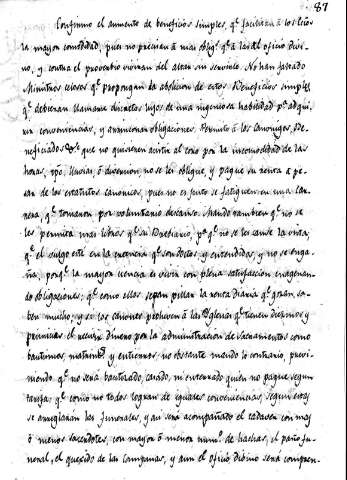 87
Confirmo el aumento de beneficios simples, qe facilitan á los
la mayor comodidad, pues no precisan á más obligon qe á rezar el oficio divi-
no, y contra el proverbio vivirán del altar sin servirlo. No han faltado
Ministros celosos qe propongan la abolicion de estos Beneficios simples,
qe debieran llamarse discretos hijos de una ingeniosa habilidad pa adqui-
rir conveniencias, y arrinconar obligaciones. Permito á los Canonigos, Be-
neficiados &a que no quisieren asistir al coro por la incomodidad de las
horas, frio, lluvias, ó desazon no se les obligue, y pague su renta á pe-
sar de los estatutos canonicos, pues no es justo se fatiguen en una car-
rera, qe tomaron por voluntario descanso. Mando tambien qe no se
les permita mas libros qe su Breviario, pa qe no se les canse la vista;
qe el vulgo está en la creencia qe son doctos, y entendidos, y no se enga-
ña, porqe la mayor ciencia es vivir con plena satisfaccion enagenan-
do obligaciones; qe como ellos sepan pillar la renta diaria qe gozan, sa-
ben mucho, y si los canones prohiven á las Yglesias qe tienen diezmos y
primicias el recivir dinero por la administracion de Sacramentos como
bautismos, matrimos y entierros, no obstante mando lo contrario, previ-
niendo qe no será bautizado, casado, ni enterrado quien no pague segun
tarifa; qe como no todos logran de iguales conveniencias, segun estas
se arreglarán los funerales, y asi será acompañado el cadaver con mas
ó menos sacerdotes, con mayor ó menor numo de hachas, el paño fu-
neral, el quexido de las campanas, y aun el oficio divino será compren-